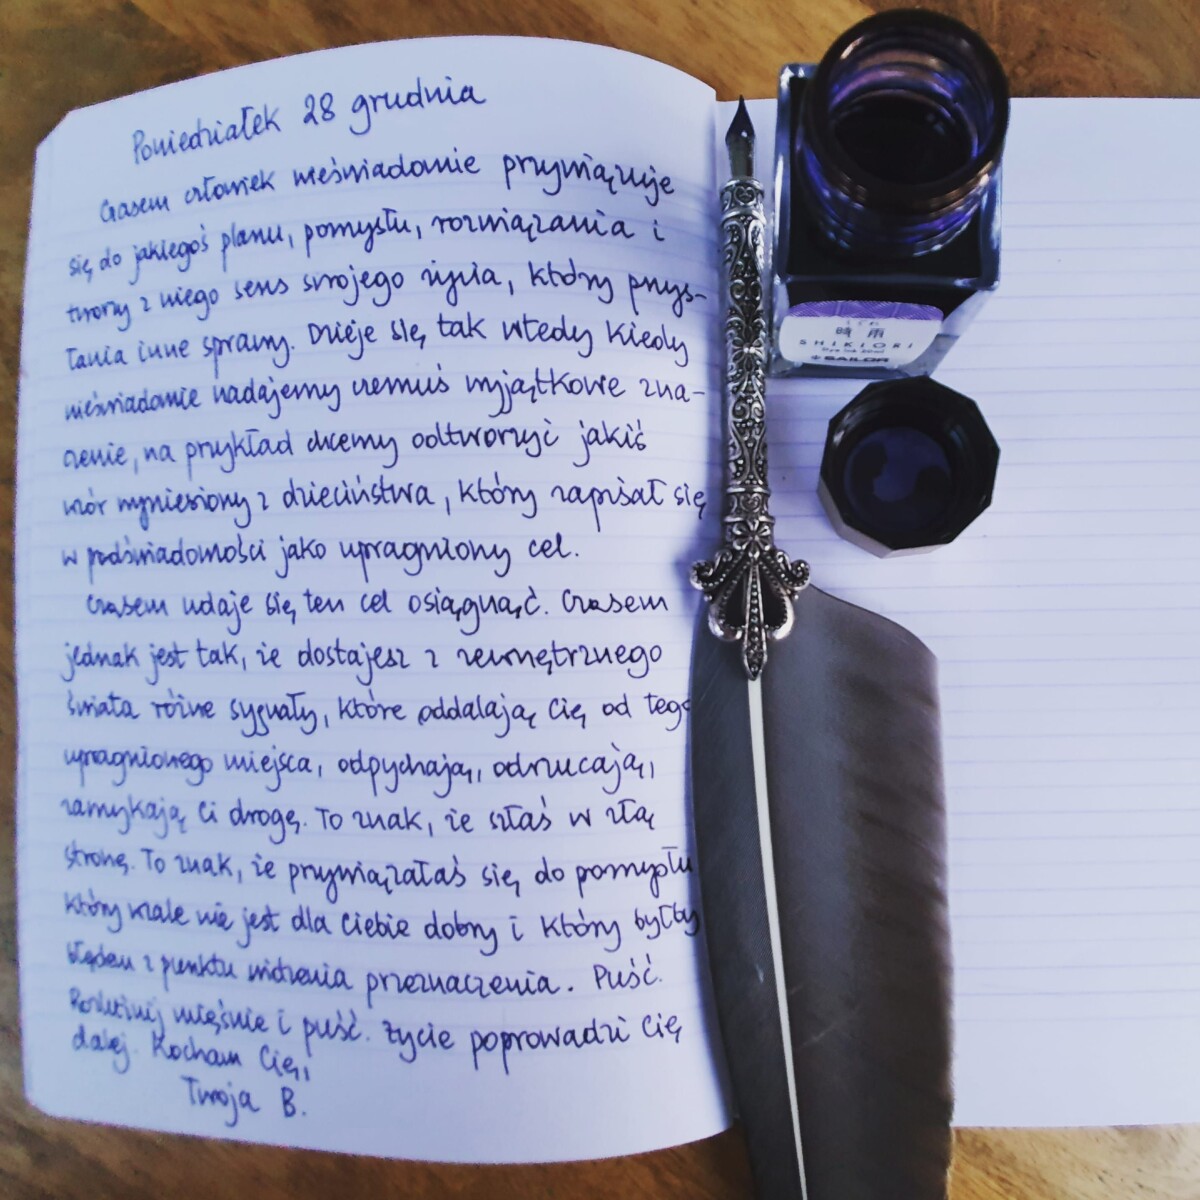 Poniedziałek 28 grudnia
Czasem człowiek nieświadomie przywiązuje
się do jakiegoś planu, pomysłu, rozwiązania i
tworzy z niego sens swojego życia, który przys-
łania inne sprawy. Dzieje się tak wtedy kiedy
nieświadomie nadajemy czemuś wyjątkowe zna-
czenie, na przykład chcemy odtworzyć jakiś
wzór wyniesiony z dzieciństwa, który zapisał się
w podświadomości jako upragniony cel.
Czasem udaje się ten cel osiągnąć. Czasem
jednak jest tak, że dostajesz z zewnętrznego
świata różne sygnały, które oddalają Cię od tego
upragnionego miejsca, odpychają, odrzucają,
zamykają Ci drogę. To znak, że szłaś w złą
stronę. To znak, że przywiązałaś się do pomysłu
który wcale nie jest dla Ciebie dobry i który byłby
błędem z punktu widzenia przeznaczenia. Puść.
Rozluźnij mięśnie i puść. Życie poprowadzi Cię
dalej. Kocham Cię,
Twoja B.
しぐれ
時雨
SHIKIORI
Dye ink 20ml
SAILOR